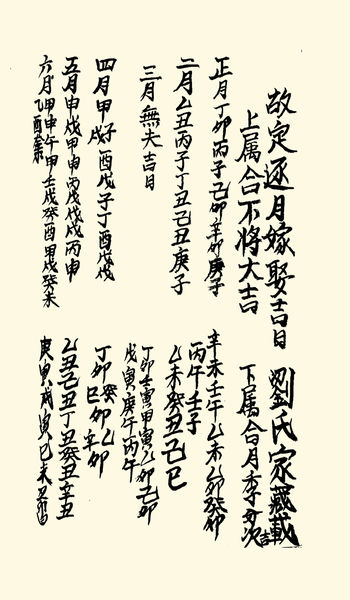 故定逐月嫁娶吉日
上属合不将大吉
正月丁卯丙子己卯辛卯庚子
二月乙丑丙子丁丑己丑庚子
三月無夫吉日
四月甲子酉戊子丁酉戊戌
戌
五月申戌甲申丙戌戊戌丙申
六月甲申午甲壬戌癸酉甲戌癸未
乙酉
劉氏家藏載
下属合月季次吉
辛未壬午乙未乙卯癸卯
丙午壬子
乙未癸丑己巳
丁卯壬寅甲寅乙卯己卯
戊寅庚午丙午
丁卯癸卯乙卯
巳辛卯
乙丑己丑丁丑癸丑辛丑
庚寅戊寅巳未